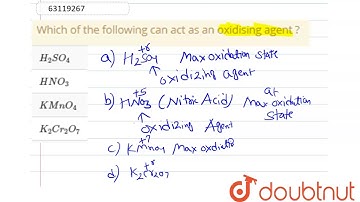 63119267
Which of the following can act as an oxidising agent ?
H2SO4
HNO3
KMnO4
K2Cr2O7
+6
a) H2SO4 Max oxidation state
oxidizing agent
+5
b) HNO3 (Nitric Acid) at Max oxidation State
oxidizing Agent
+7
c) KMnO4 Max oxdiatio
+6
d) K2Cr2O7
doubtnut